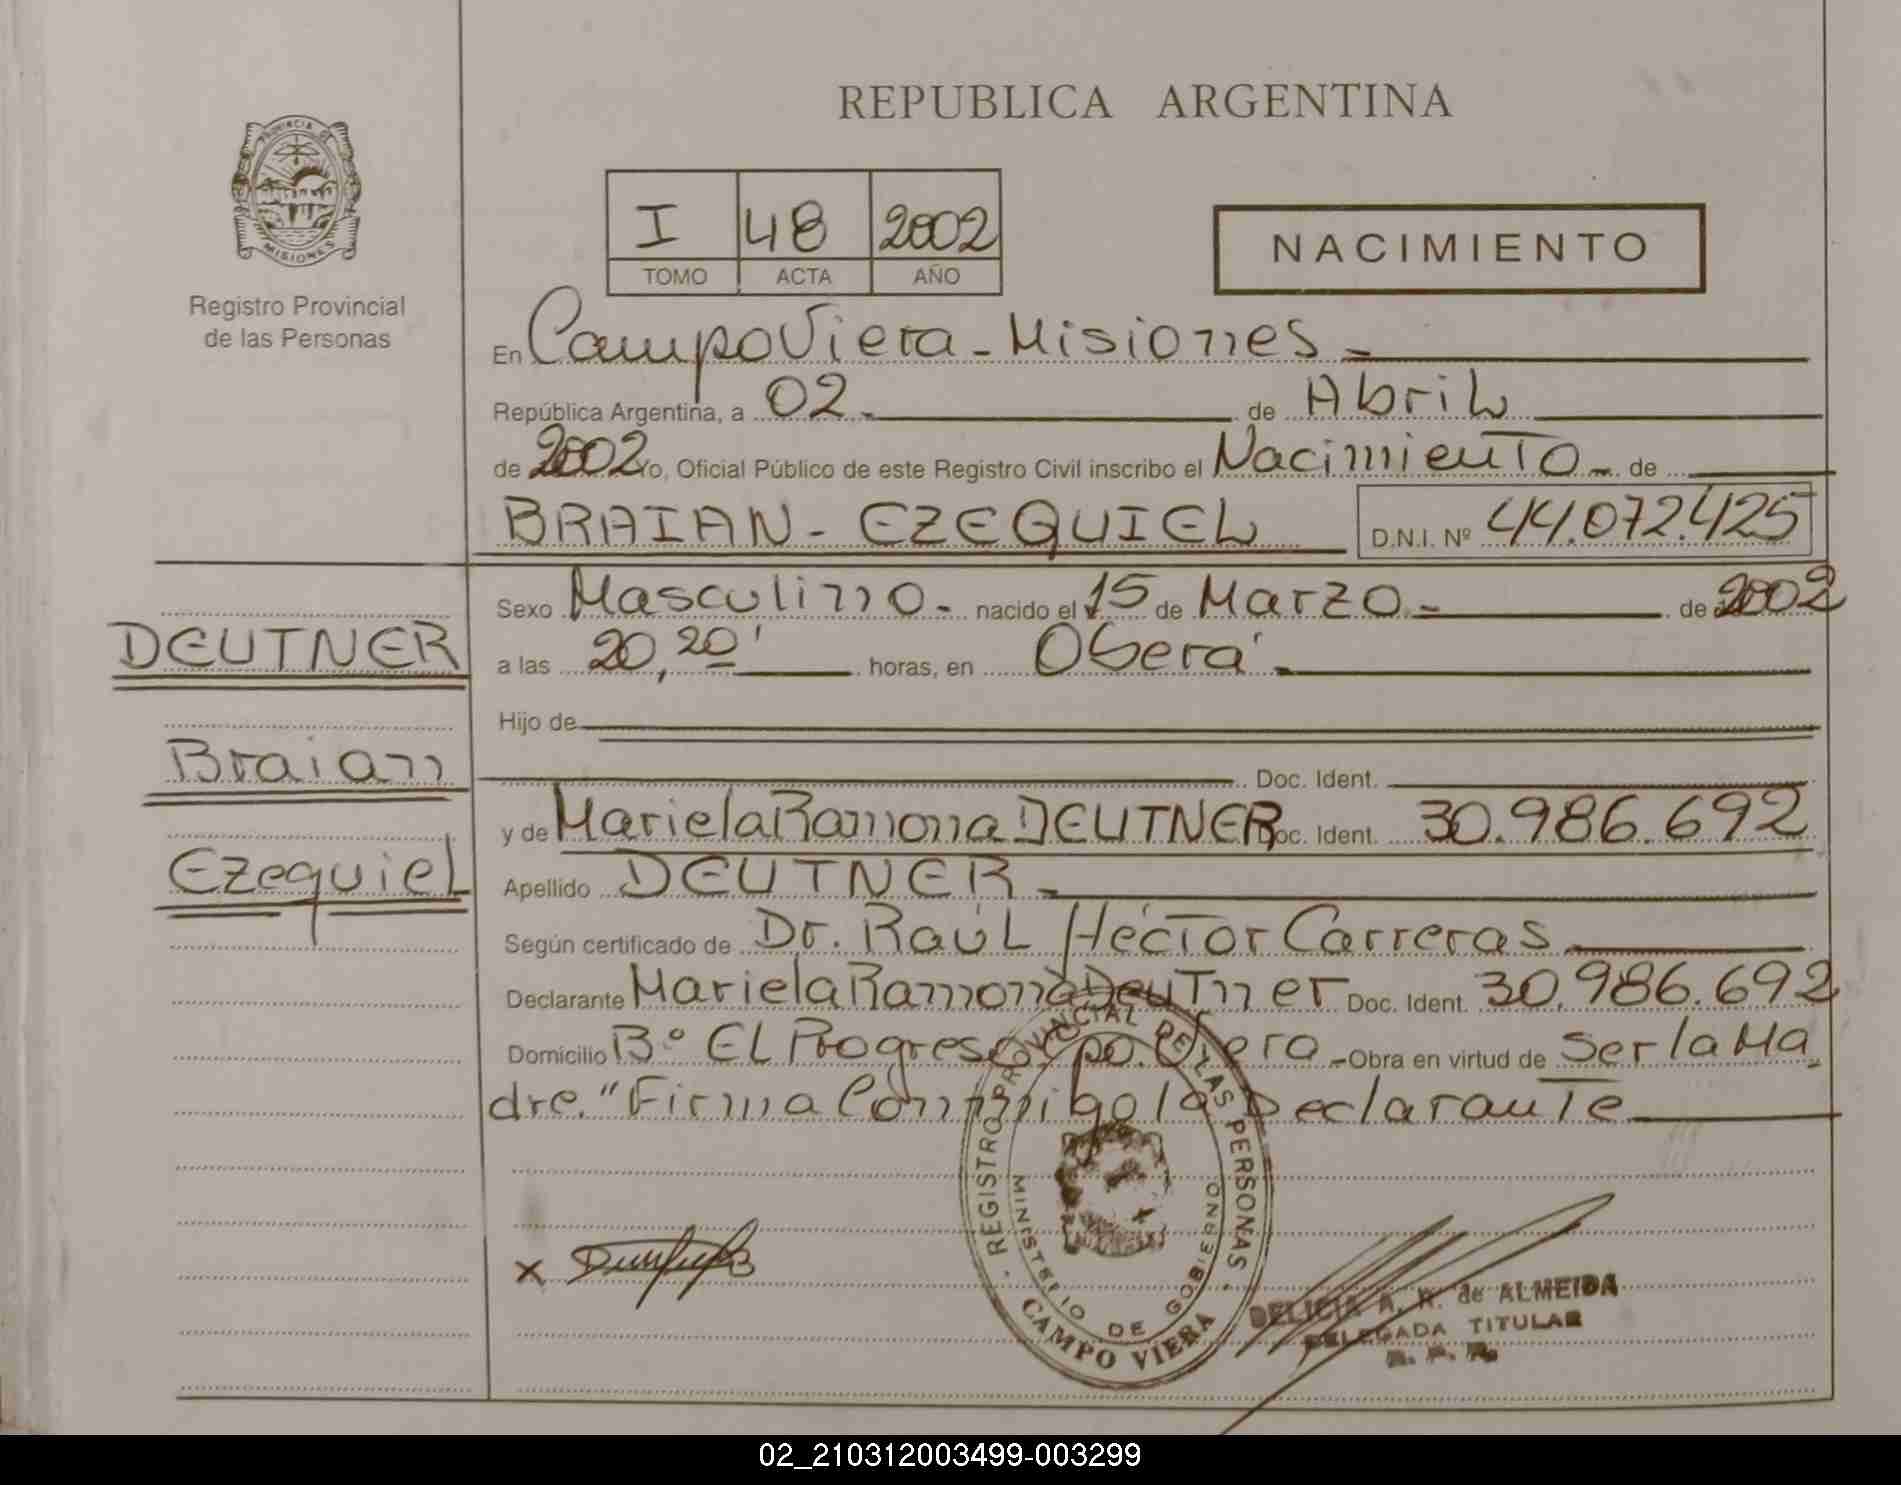 REPUBLICA ARGENTINA
PROVINCIA DE
MISIONES
Registro Provincial
de las Personas
I 48 2002
TOMO ACTA AÑO
NACIMIENTO
En Campo Viera - Misiones -
República Argentina, a 02 - de Abril
de 2002 Yo, Oficial Público de este Registro Civil inscribo el Nacimiento - de
BRAIAN - EZEQUIEL D.N.I. Nº 44.072.425
Sexo Masculino - nacido el 15 de Marzo - de 2002
DEUTNER
a las 20,20' horas, en Oberá -
Hijo de
Braian
Doc. Ident.
y de Mariela Ramona DEUTNER Doc. Ident. 30.986.692
Ezequiel
Apellido DEUTNER -
Según certificado de Dr. Raúl Héctor Carreras
Declarante Mariela Ramona Deutner Doc. Ident. 30.986.692
Domicilio Bº El Progreso po. Obera - Obra en virtud de Ser la Ma
dre. "Firma Conmigo la Declarante
REGISTRO PROVINCIAL DE LAS PERSONAS
MINISTERIO DE GOBIERNO
CAMPO VIERA
x
DELICIA A. R. de ALMEIDA
DELEGADA TITULAR
02_210312003499-003299